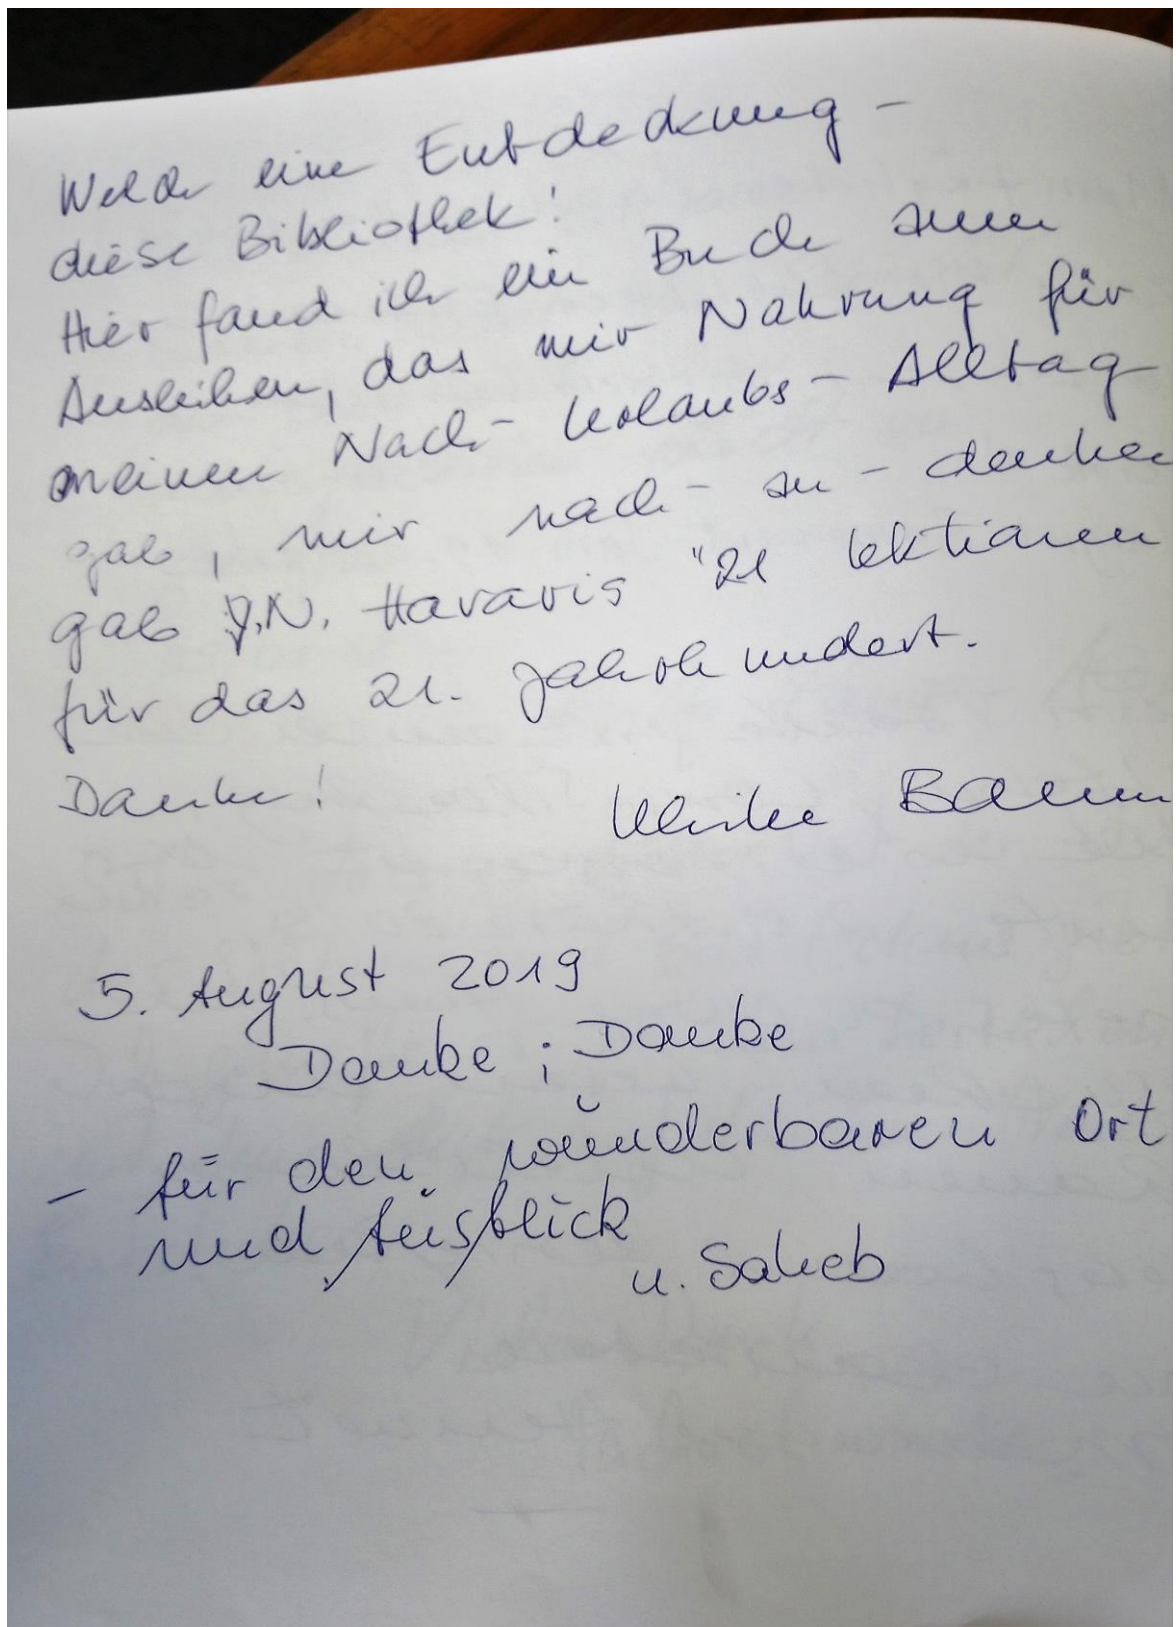 Welche eine Entdeckung -
diese Bibliothek!
Hier fand ich ein Buch zum
Ausleihen, das mir Nahrung für
meinen Nach- Urlaubs - Alltag
gab, mir nach - zu - denken
gab Y.N. Hararis "21 Lektionen
für das 21. Jahrhundert.
Danke!
Ulrike Baum
5. August 2019
Danke ; Danke
- für den wunderbaren Ort
und Ausblick
u. Salieb